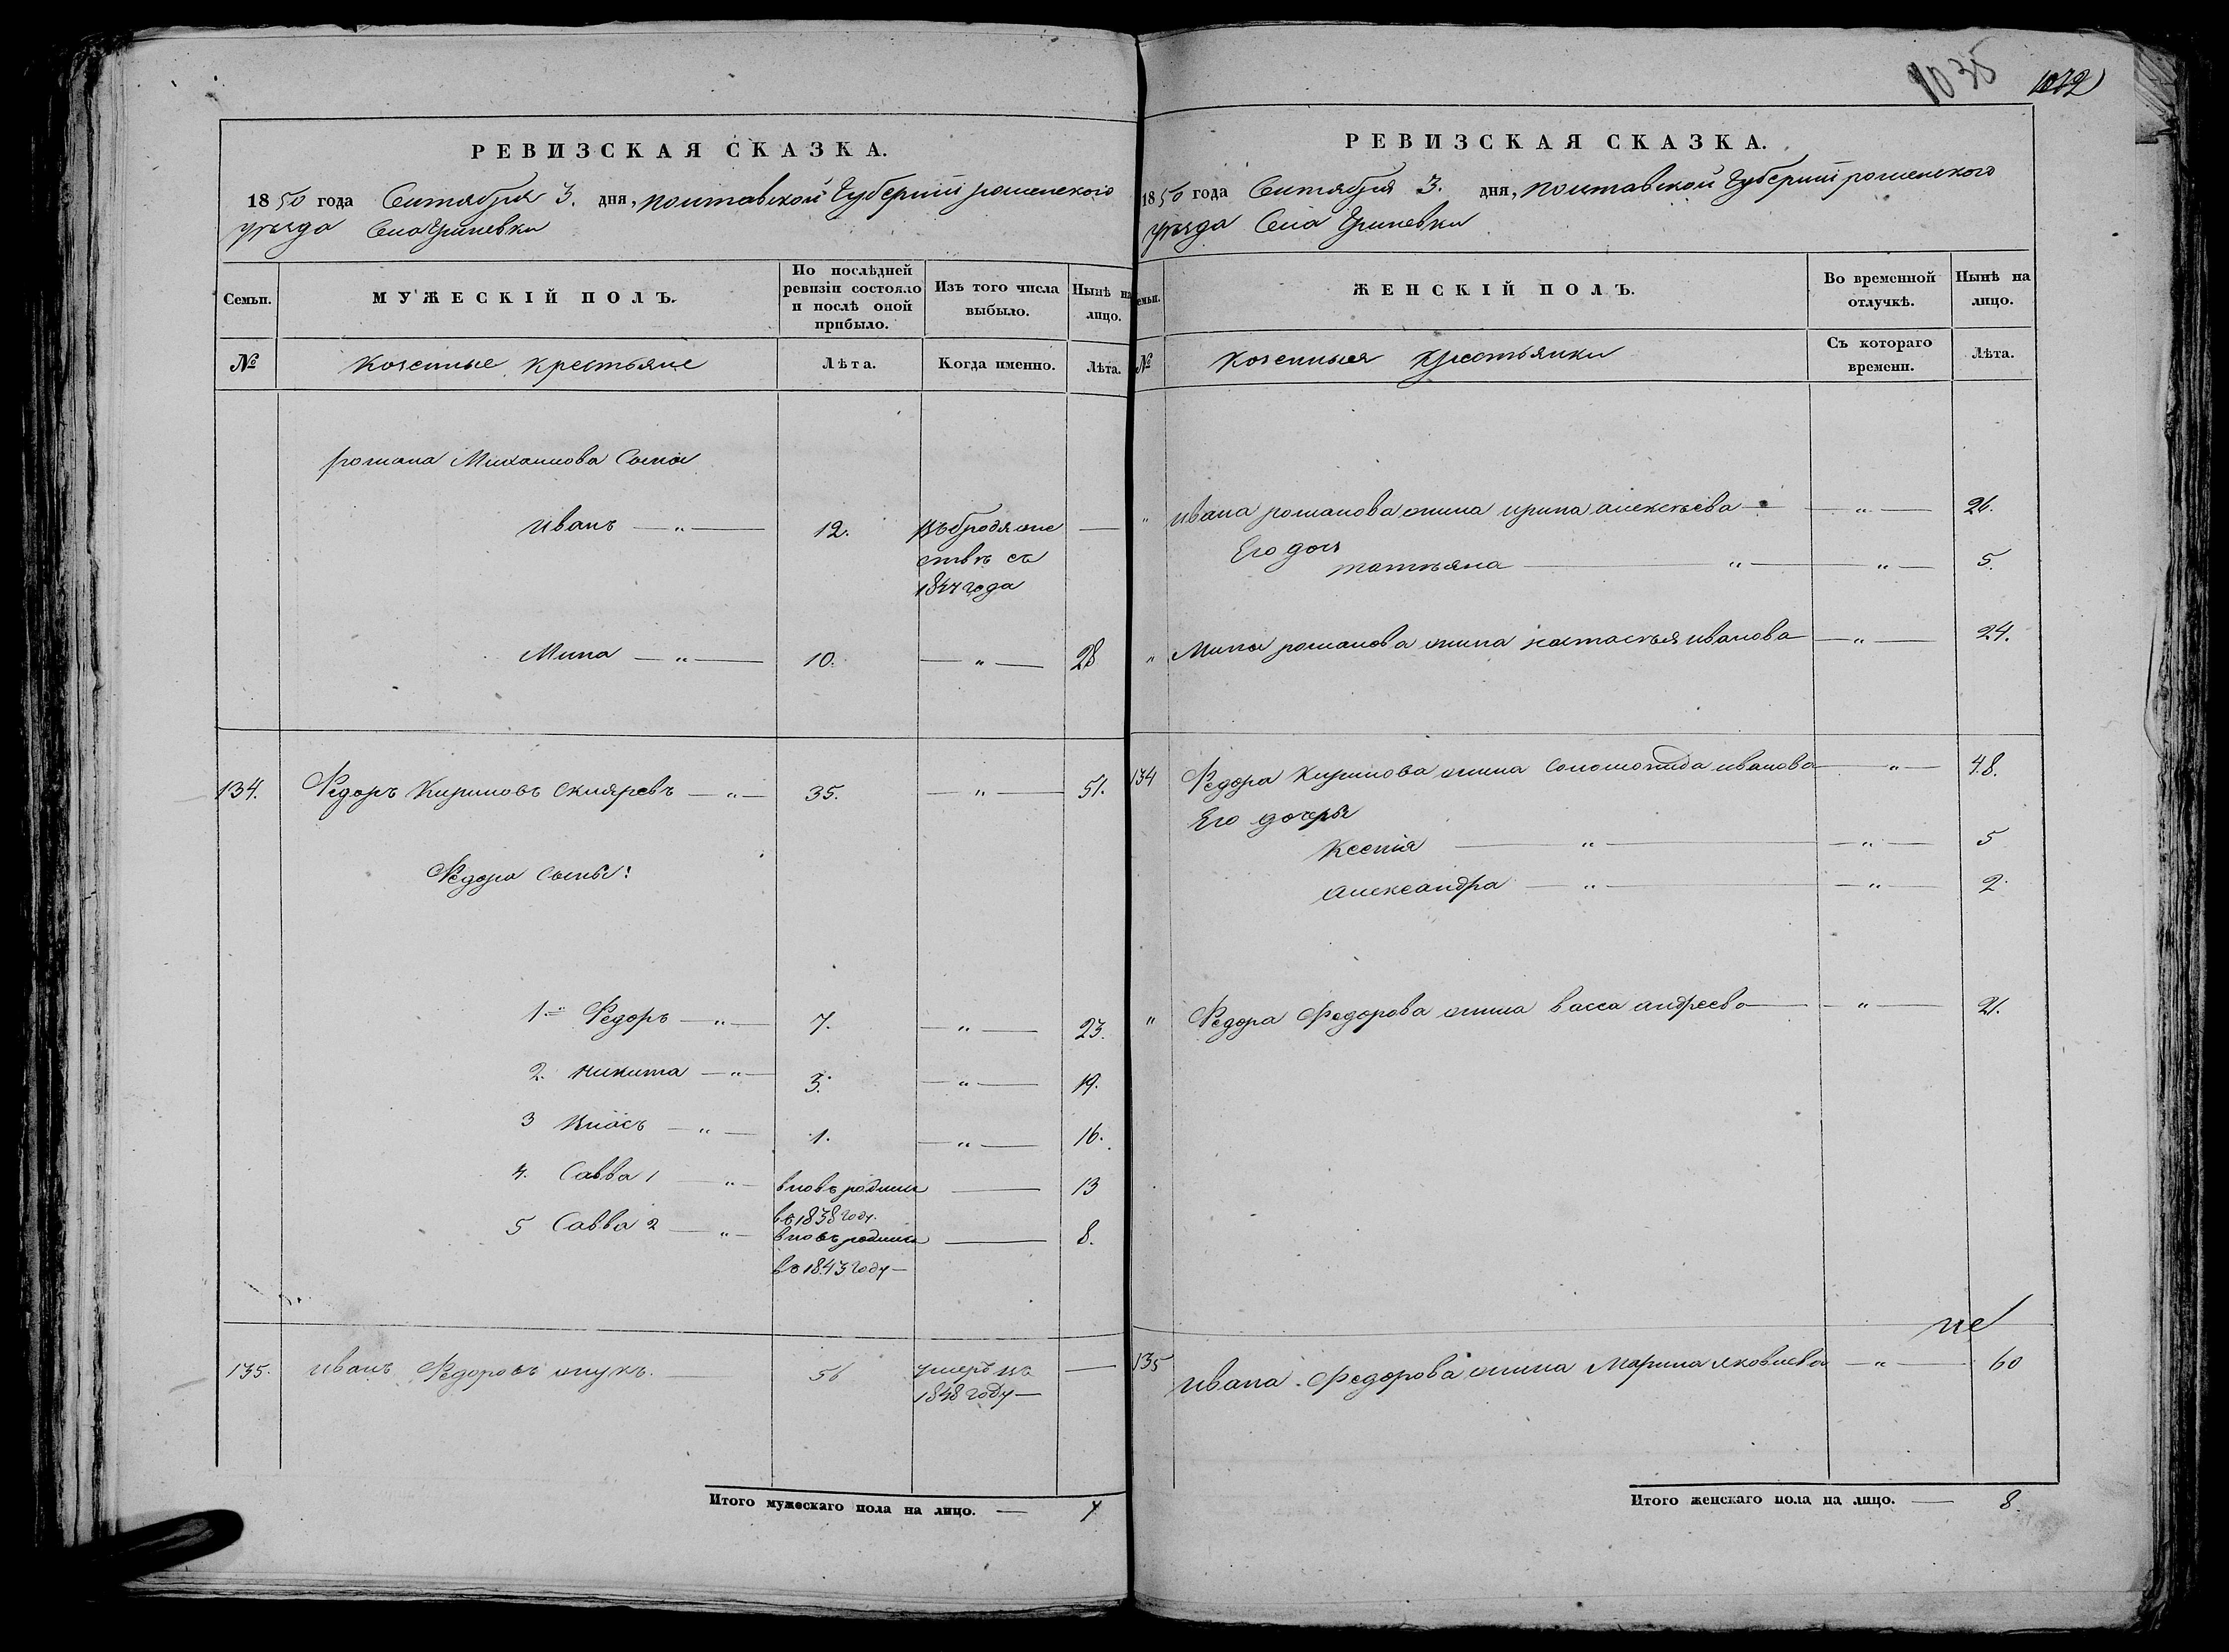 1035 1072
РЕВИЗСКАЯ СКАЗКА.
1850 года Сентября 3. дня, полтавской Губерніи роменского
уѣзда Села Гриневки
Семьи.
МУЖЕСКІЙ ПОЛЪ.
По послѣдней ревизіи состояло и послѣ оной прибыло.
Изъ того числа выбыло.
Нынѣ на лицо.
№
Козенные крестьяне
Лѣта.
Когда именно.
Лѣта.
романа Михаилова Сыны
иванъ — „ — 12. Въ бродяже —
ствѣ съ
1844 года
Мина — „ — 10. — „ — 28
134. Ѳедоръ Кириловъ скляревъ — „ — 35. — „ — 51.
Ѳедора Сыны:
1й Ѳедоръ — „ — 7. — „ — 23.
2. никита — „ — 3. — „ — 19.
3 Власъ — „ — 1. — „ — 16.
4. Савва 1 — „ — вновь родился — 13
въ 1838 году.
5 Савва 2 — „ — вновь родился — 8.
въ 1843 году —
135. иванъ Ѳедоровъ — 56 умеръ въ —
1848 году —
Итого мужескаго пола на лицо. — 7
РЕВИЗСКАЯ СКАЗКА.
1850 года Сентября 3. дня, полтавской Губерніи роменского
уѣзда Села Гриневки
Семьи.
ЖЕНСКІЙ ПОЛЪ.
Во временной отлучкѣ.
Нынѣ на лицо.
№
козенныя крестьянки
Съ котораго времени.
Лѣта.
„ ивана романова жина ирина алексѣева — — „ — 26.
Его дочь
татьяна — „ — — „ — 5.
„ Мины романова жина настасья иванова — „ — 24.
134 Ѳедора Кирилова жина Соломонида иванова — „ — 48.
Его дочеры
Ксенія — „ — — „ — 5
александра — „ — — „ — 2.
„ Ѳедора Федорова жина васса андреева — „ — 21.
135 ивана Федорова жина Марина яковлева — „ — 60
Итого женскаго пола на лицо. — 8.